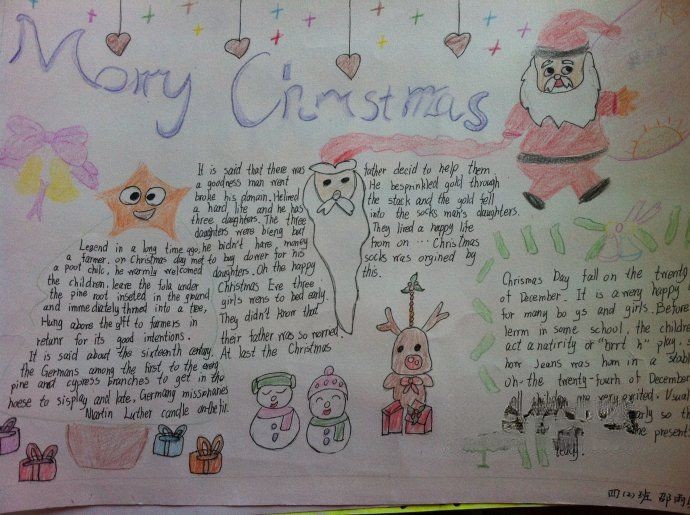 Morry Christmas
It is said that there was
a goodness man went
broke his domain. He lired
a hard life and he has
three daughters. The three
daughters were bieng but
he didn't hare money
to buy dower for his
daughters. On the happy
Christmas Eve three
girls wens to bed early.
They didn't know that
their father was so worried.
At last the Christmas
father decid to help them.
He besprinkled gold through
the stack and the gold fell
into the socks man's daughters.
They lired a happy life
from on ... Christmas
socks was orgined by
this.
Legend in a long time ago,
a farmer, on Christmas day met
a poor chilc, he warmly welcomed
the children, leave the folk under
the pine root inseted in the ground
and immediately thrned into a tree,
Hung above the gift to farmers in
retunr for its good intentions.
It is said about the sixteenth century,
the Germans among the first, to the
pine and cypress branches to get in the
hoese to sisplay and late, Germang missiphanes
Martin Luther candle on the fir.
Chrismas Day fall on the twenty
of December. It is a very happy
for many bo ys and girls. Before
lerm in some school, the children
act a natirity or "brrt h" play, s
how Jeans was hum in a stabl
On the twenty-fourth of December
all children are very excited. Usual
arly so th
he presents
ready.
四(2)班 邵雨